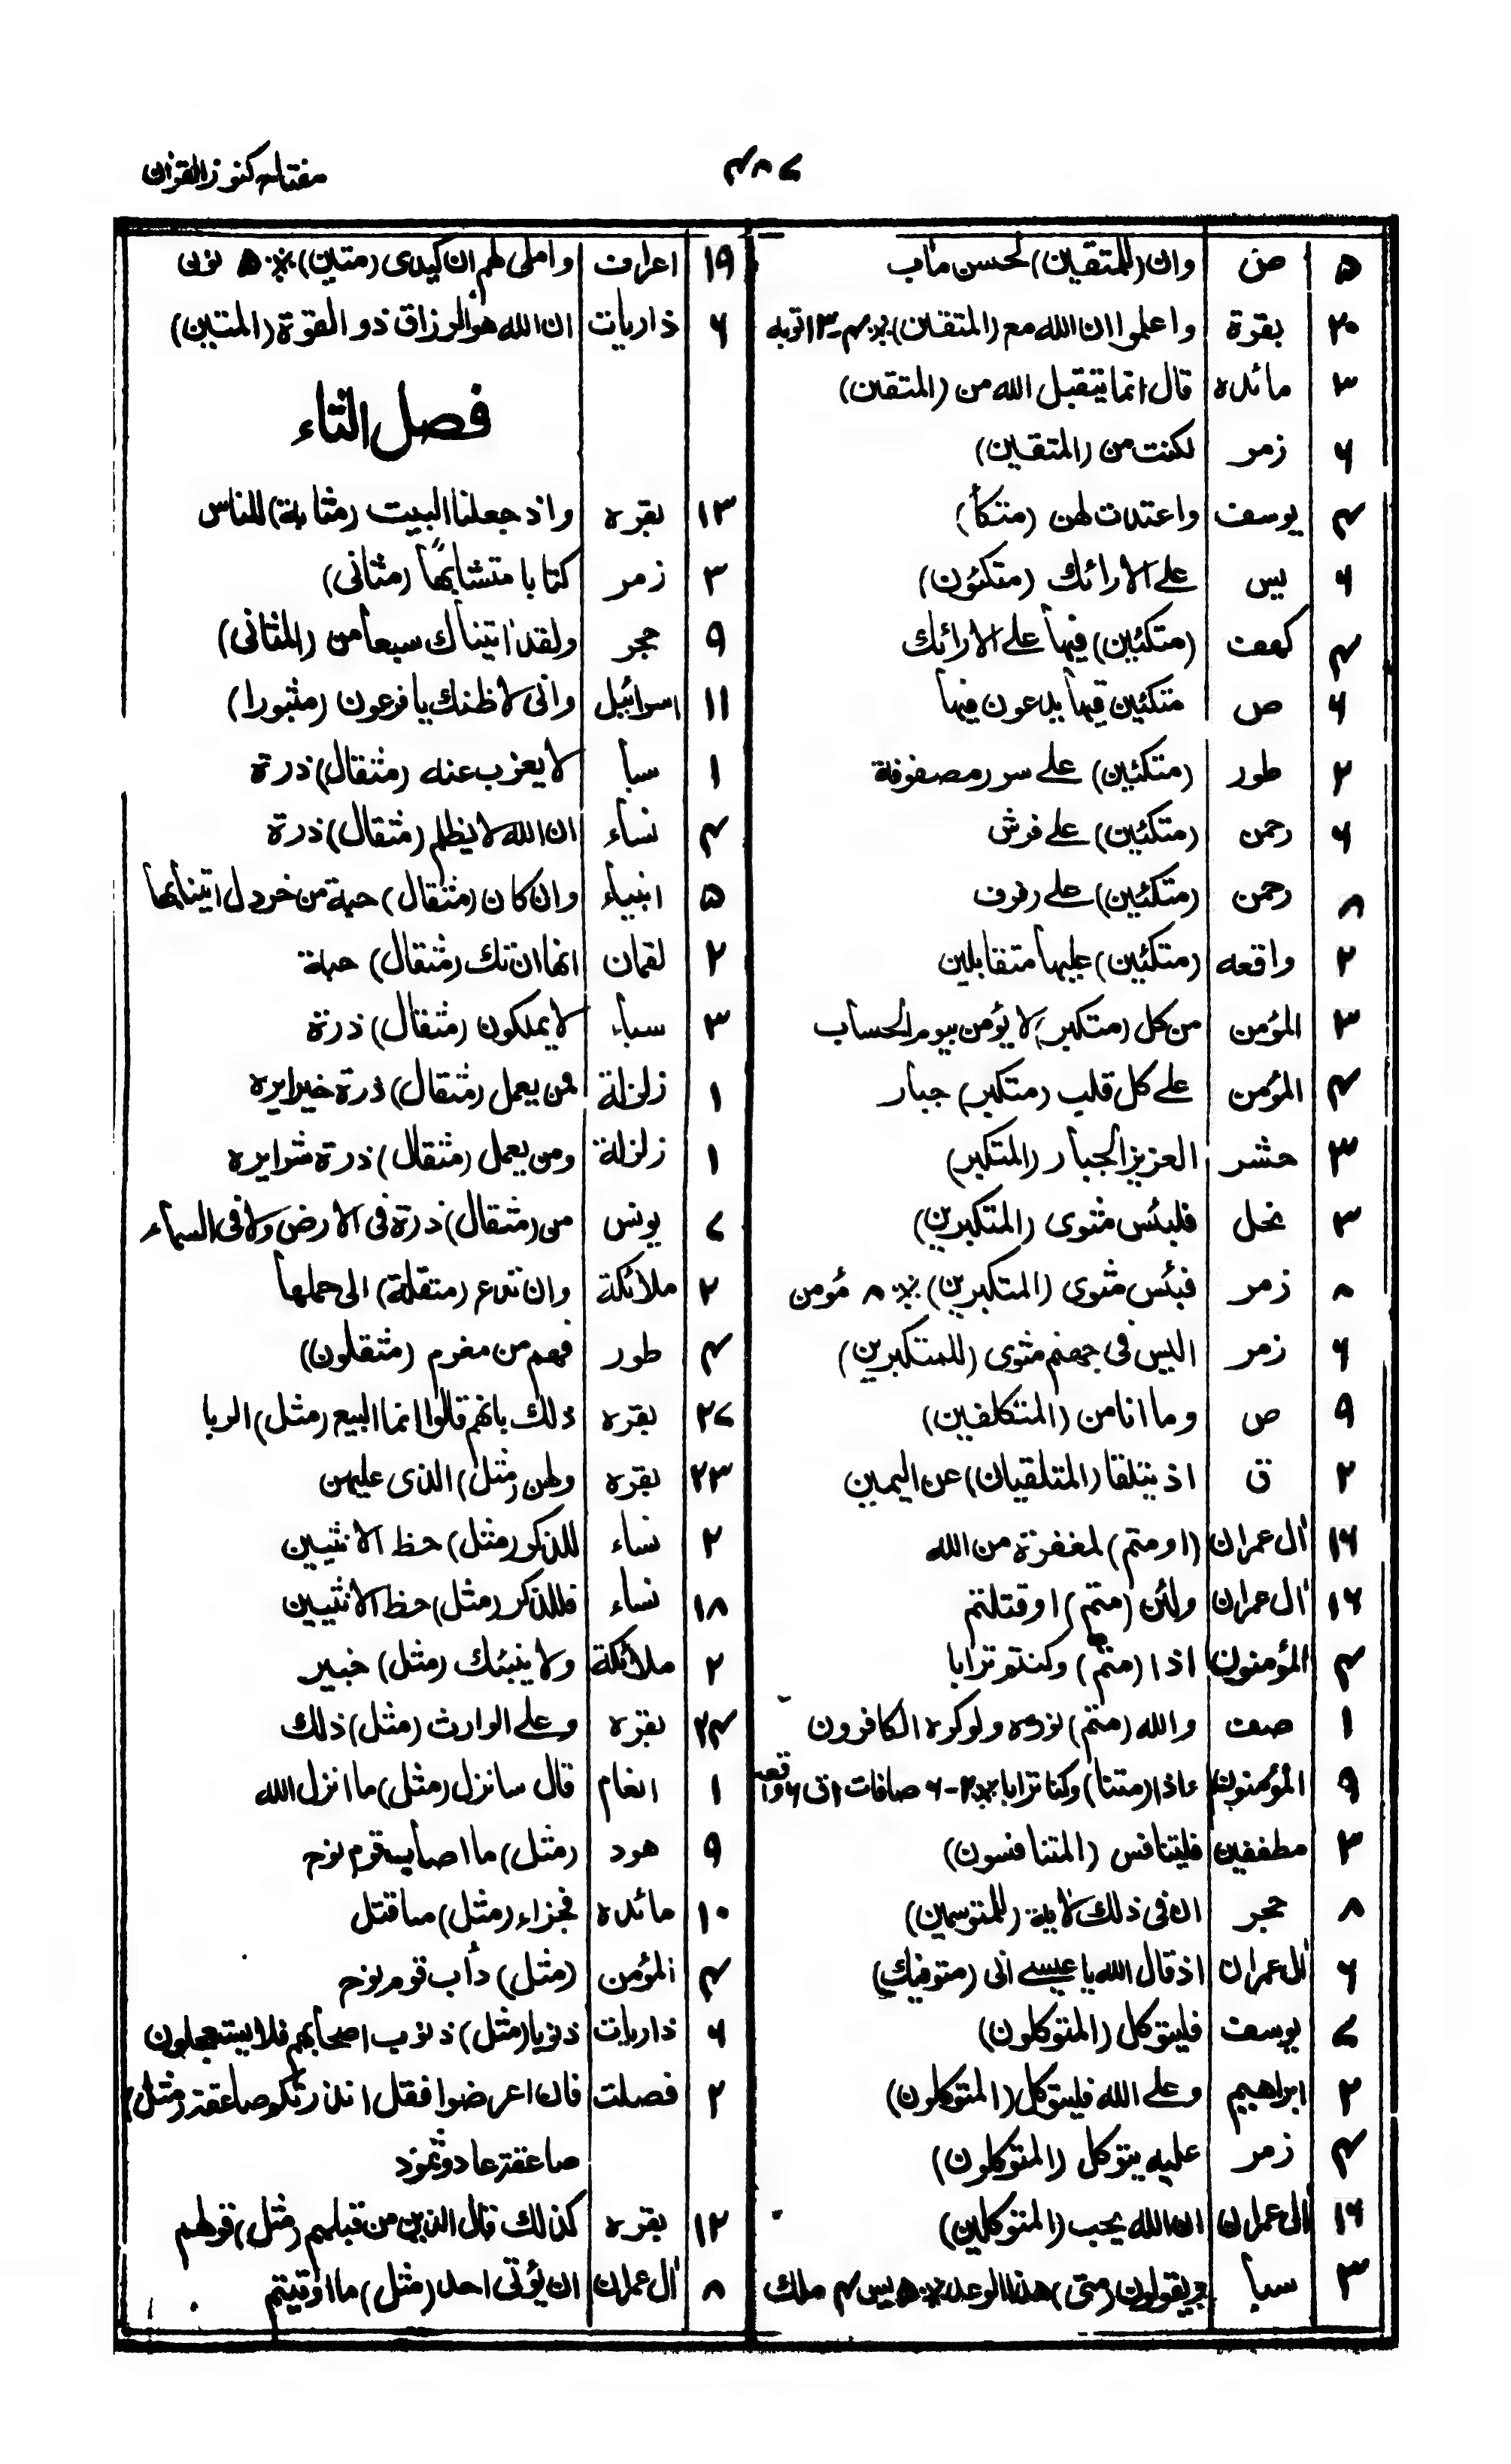 ٤٨٧
مفتاح كنوز القرآن
٥ ص وان (للمتقين) لحسن مآب
٢٠ بقرة واعلموا ان الله مع (المتقين)
٣ مائده قال انما يتقبل الله من (المتقين)
٦ زمر لكنت من (المتقين)
٤ يوسف واعتدت لهن (متكأ)
٤ يس على الارائك (متكئون)
٤ كهف (متكئين) فيها على الارائك
٤ ص متكئين فيها يدعون فيها
٢ طور (متكئين) على سرر مصفوفة
٦ رحمن (متكئين) على فرش
٨ رحمن (متكئين) على رفرف
٢ واقعه (متكئين) عليها متقابلين
٣ المؤمن من كل (متكبر) لا يؤمن بيوم الحساب
٤ المؤمن على كل قلب (متكبر) جبار
٣ حشر العزيز الجبار (المتكبر)
٣ نحل فلبئس مثوى (المتكبرين)
٨ زمر فبئس مثوى (المتكبرين) ٨ مؤمن
٦ زمر اليس فى جهنم مثوى (للمتكبرين)
٩ ص وما انا من (المتكلفين)
٢ ق اذ يتلقا (المتلقيان) عن اليمين
١٦ اٰل عمران (او متم) لمغفرة من الله
١٦ اٰل عمران ولئن (متم) او قتلتم
٤ المؤمنون اذا (متم) وكنتم ترابا
١ صف والله (متم) نوره ولوكره الكافرون
٩ المؤمنون ءاذا (متنا) وكنا ترابا
٣ مطففين فليتنافس (المتنافسون)
٨ حجر ان فى ذلك لاية (للمتوسمين)
٦ اٰل عمران اذ قال الله يا عيسى انى (متوفيك)
٧ يوسف فليتوكل (المتوكلون)
٢ ابراهيم وعلى الله فليتوكل (المتوكلون)
٤ زمر عليه يتوكل (المتوكلون)
١٦ اٰل عمران ان الله يحب (المتوكلين)
٣ سبا ويقولون (متى) هذا الوعد ٥ يس ٤ ملك
١٩ اعراف واملى لهم ان كيدى (متين)
٦ ذاريات ان الله هو الرزاق ذو القوة (المتين)
فصل الثاء
١٣ بقره واذ جعلنا البيت (مثابة) للناس
٣ زمر كتابا متشابهًا (مثانى)
٩ حجر ولقد اٰتيناك سبعا من (المثانى)
١١ اسرائيل وانى لاظنك يا فرعون (مثبورا)
١ سبأ لا يعزب عنه (مثقال) ذرة
٤ نساء ان الله لا يظلم (مثقال) ذرة
٥ انبياء وان كان (مثقال) حبة من خردل اتينا بها
٢ لقمان انها ان تك (مثقال) حبة
٣ سباء لا يملكون (مثقال) ذرة
١ زلزلة فمن يعمل (مثقال) ذرة خيرا يره
١ زلزلة ومن يعمل (مثقال) ذرة شرا يره
٧ يونس من (مثقال) ذرة فى الارض ولا فى السماء
٢ ملائكة وان تدع (مثقلة) الى حملها
٤ طور فهم من مغرم (مثقلون)
٢٧ بقره ذلك بانهم قالوا انما البيع (مثل) الربا
٢٣ بقره ولهن (مثل) الذى عليهن
٢ نساء للذكر (مثل) حظ الانثيين
١٨ نساء فللذكر (مثل) حظ الانثيين
٢ ملائكة ولا ينبئك (مثل) خبير
٢٤ بقره وعلى الوارث (مثل) ذلك
١ انعام قال سانزل (مثل) ما انزل الله
٩ هود (مثل) ما اصاب قوم نوح
١٠ مائده فجزاء (مثل) ما قتل
٤ المؤمن (مثل) دأب قوم نوح
٦ ذاريات ذنوبا (مثل) ذنوب اصحابهم فلا يستعجلون
٢ فصلت فان اعرضوا فقل انذرتكم صاعقة (مثل)
صاعقة عاد وثمود
١٢ بقره كذلك قال الذين من قبلهم (مثل) قولهم
٨ اٰل عمران ان يؤتى احد (مثل) ما اوتيتم